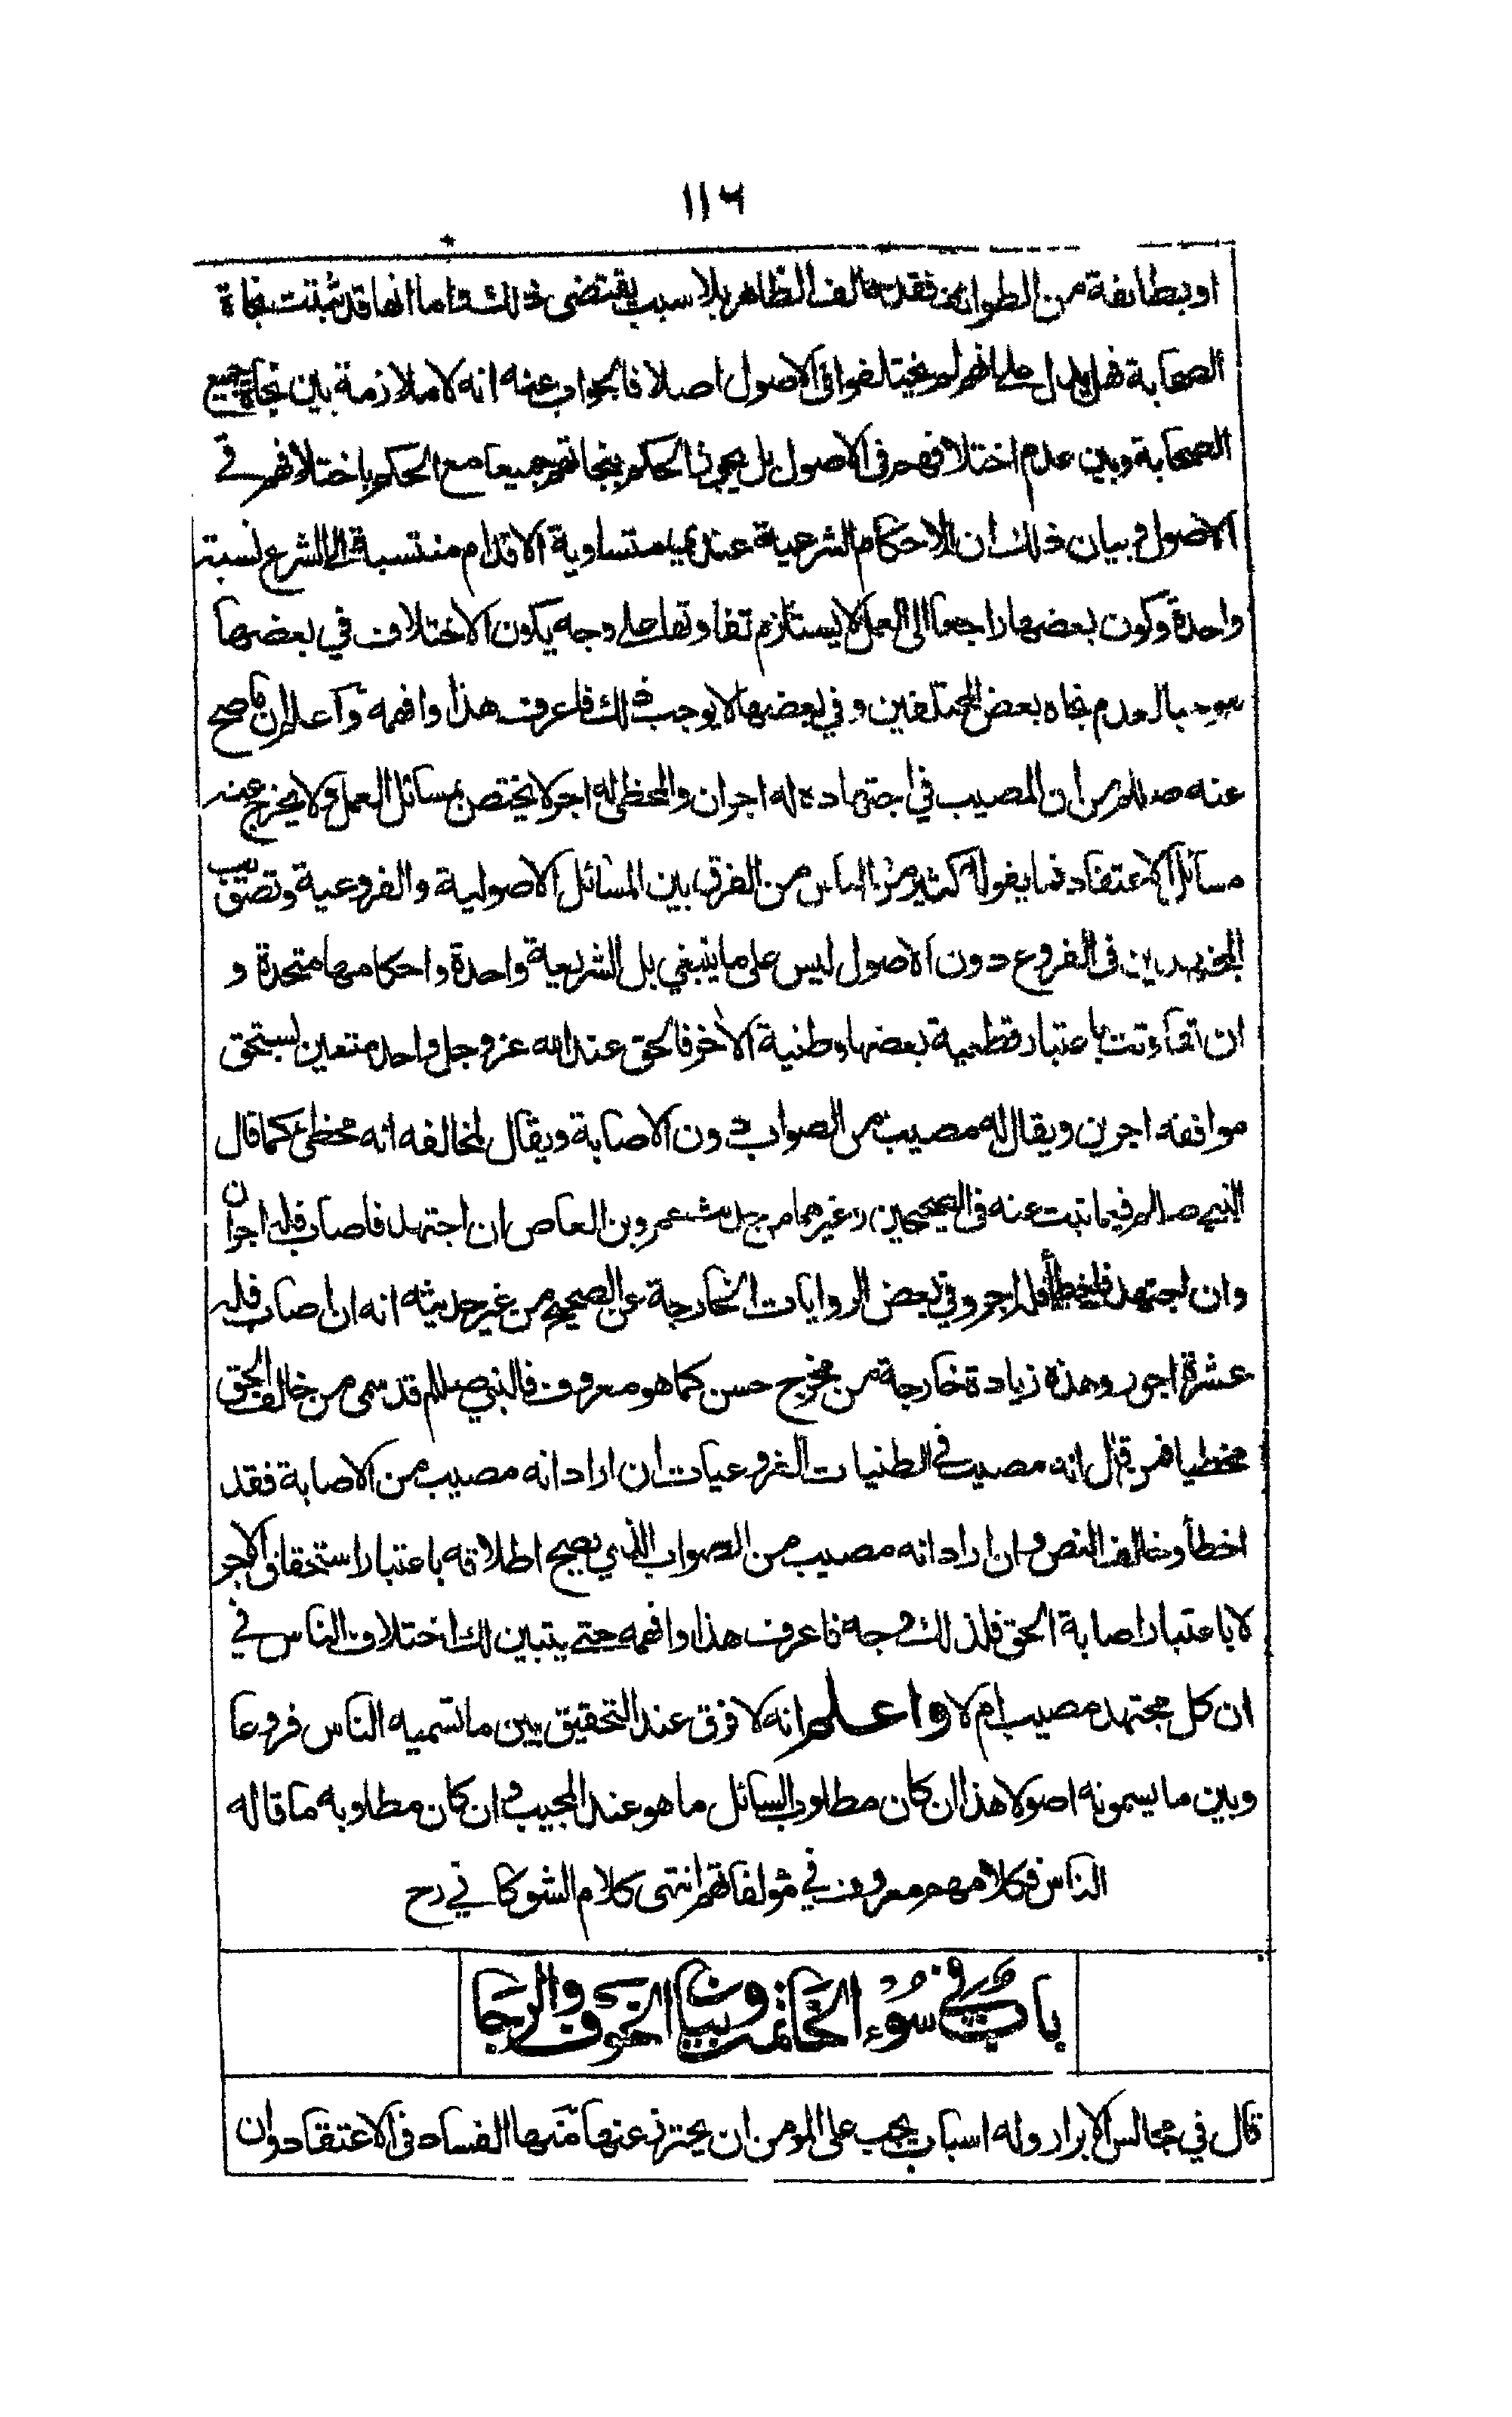 ١١٦
او بطائفة من الطوائف فقد خالف الظاهر بلا سبب يقتضى ذلك واما انها قد ثبتت نجاة
الصحابة فهل يدل على انهم لم يختلفوا فى الاصول اصلا فالجواب عنه انه لا ملازمة بين نجاة جميع
الصحابة وبين عدم اختلافهم فى الاصول بل يجوز الحكم بنجاتهم جميعا مع الحكم باختلافهم في
الاصول وبيان ذلك ان الاحكام الشرعية عندي متساوية الاقدام منتسبة الى الشرع نسبة
واحدة وكون بعضها راجعا الى العمل لا يستلزم تفاوتها على وجه يكون الاختلاف في بعضها
موجبا لعدم نجاه بعض المختلفين وفي بعضها لا يوجب ذلك فاعرف هذا وافهمه واعلم ان ما صح
عنه صللم من ان المصيب في اجتهاده له اجران والمخطى له اجر لا يختص بمسائل العمل ولا يخرج عنه
مسائل الاعتقاد فما يقوله كثير من الناس من الفرق بين المسائل الاصولية والفروعية وتصويب
المجتهدين فى الفروع دون الاصول ليس على ما ينبغي بل الشريعة واحدة واحكامها متحدة و
ان تفاوتت باعتبار قطعية بعضها وظنية الاخر فالحق عند الله عز وجل واحد متعين يستحق
موافقه اجرين ويقال له مصيب من الصواب دون الاصابة ويقال لمخالفه انه مخطئ كما قال
النبي صللم فيما ثبت عنه فى الصحيحين وغيرهما من حديث عمرو بن العاص ان اجتهد فاصاب فله اجران
وان اجتهد فاخطأ فله اجر وفي بعض الروايات الخارجة عن الصحيح من غير حديثه انه ان اصاب فله
عشرة اجور وهذه زيادة خارجة من مخرج حسن كما هو معروف فالنبي صللم قد سمى من خالف الحق
مخطيا فمن قال انه مصيب في الظنيات الفروعيات ان اراد انه مصيب من الاصابة فقد
اخطأ وخالف النص وان اراد انه مصيب من الصواب الذي يصح اطلاقه باعتبار استحقاق الاجر
لا باعتبار اصابة الحق فلذلك وجه فاعرف هذا وافهمه حتى يتبين لك اختلاف الناس في
ان كل مجتهد مصيب ام لا واعلم انه لا فرق عند التحقيق بين ما تسميه الناس فروعا
وبين ما يسمونه اصولا هذا ان كان مطلوب السائل ما هو عند المجيب وان كان مطلوبه ما قاله
الناس فكلامهم معروف في مؤلفاتهم انتهى كلام الشوكاني رح
باب في سوء الخاتمة وبيان الخوف والرجا
قال في مجالس الابرار وله اسباب يجب على المومن ان يحترز عنها منها الفساد فى الاعتقاد وان